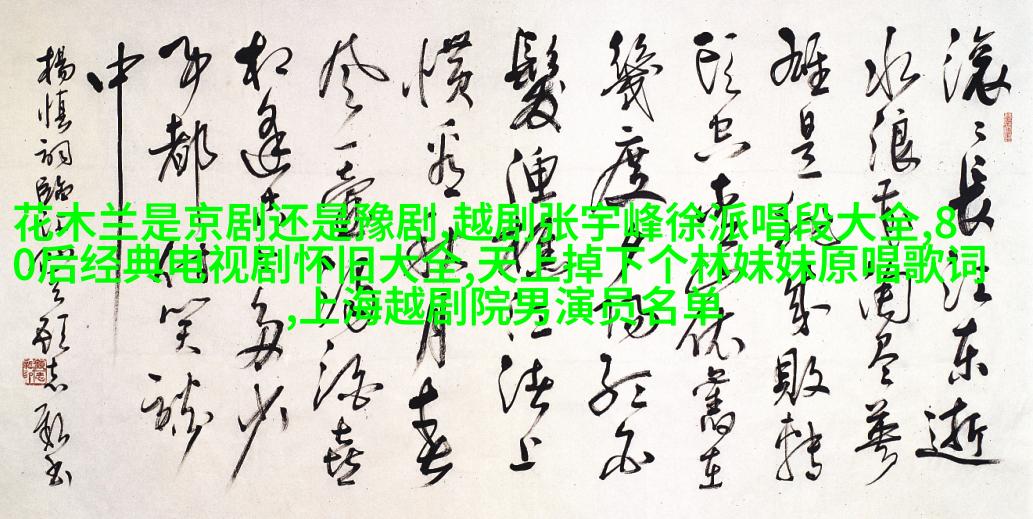 花木兰是京剧还是豫剧,越剧张宇峰徐派唱段大全,8
0后经典电视剧怀旧大全,天上掉下个林妹妹原唱歌词
,上海越剧院男演员名单
滚〻長江东逝
水浪花淘尽英
雄是非成敗轉
头空青山依舊在
幾度夕阳红白
髮漁樵江渚上
慣看秋月春
风一壶濁酒喜
相逢古今多少
事都付笑談
中
楊慎词臨江仙